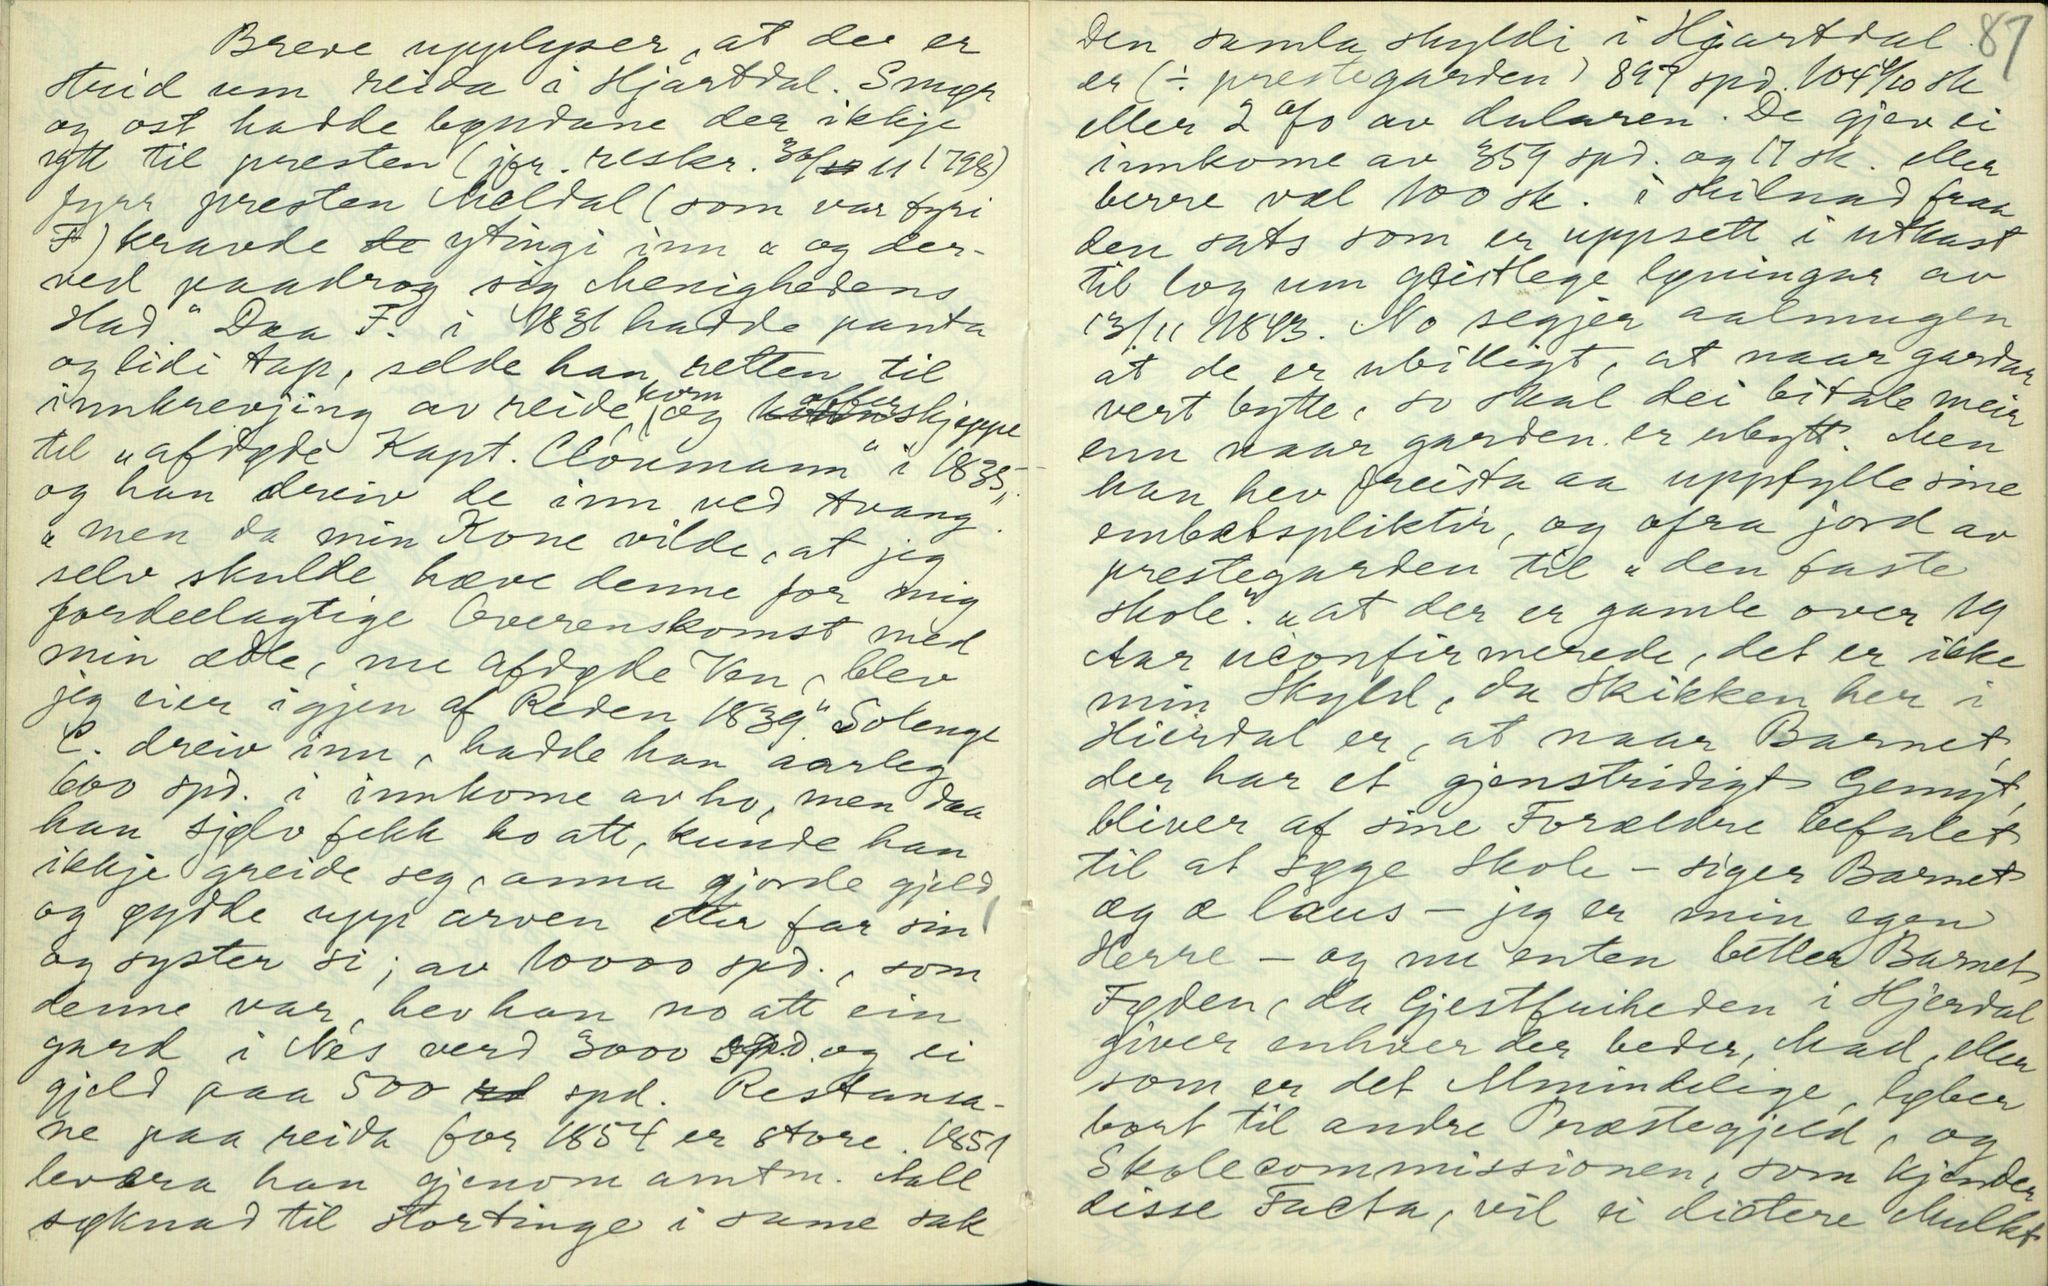 Breve upplyser, at der er
strid um reida i Hjartdal. Smør
og ost hadde bøndane der ikkje
ytt til presten (jfr. reskr. 30/11 1798)
fyrr presten Meldal (som var fyri
F) kravde ytingi inn „og der-
ved paadrog sig Menighedens
Had“ Daa F. i 1831 hadde panta
og lidi tap, selde han retten til
innkrevjing av reide, korn og offerskjeppe
til „afdøde Kapt. Cloumann“ i 1835,
og han dreiv de inn ved tvang.
„men da min Kone vilde, at jeg
selv skulde hæve denne for mig
fordeelagtige Overenskomst med
min ædle, nu afdøde Ven, blev
jeg eier igjen af Reden 1839.“ Solenge
C. dreiv inn, hadde han aarleg
600 spd. i innkome av ho, men daa
han sjølv fekk ho att, kunde han
ikkje greide seg, anna gjorde gjeld,
og øydde upp arven etter far sin
og syster si; av 10000 spd., som
denne var, hev han no att ein
gard i Nes verd 3000 spd. og ei
gjeld paa 500 spd. Restansa-
ne paa reida for 1854 er store. 1851
levera han gjenom amtm. Aall
søknad til stortinge i same sak
87
Den samla skyldi i Hjartdal
er (÷ prestegarden) 897 spd. 104 4/10 sk
eller 2 % av dalaren. De gjev ei
innkome av 359 spd. og 17 sk. eller
berre vel 100 sk. i skilnad fraa
den sats som er uppsett i utkast
til log um geistlege løningar av
13/11 1843. No segjer aalmugen
at de er ubilligt, at naar gardar
vert bytte, so skal dei bitale meir
enn naar garden er ubytt. Men
han hev freista aa uppfylle sine
embætspliktir, og ofra jord av
prestegarden til „den faste
skole“. „at der er gamle over 19
Aar uconfirmerede, det er ikke
min Skyld, da Skikken her i
Hierdal er, at naar Barnet,
der har et gjenstridigt Gemyt,
bliver af sine Forældre befalet
til at søge Skole – siger Barnet
æg æ laus – jeg er min egen
Herre – og nu enten betler Barnet
Føden, da Gjestfriheden i Hjerdal
giver enhver der beder, Mad, eller
som er det Almindelige, løber
bort til andre Præstegjeld, og
Skolecommissionen, som kjender
disse Facta, vil ei dictere Mulkt